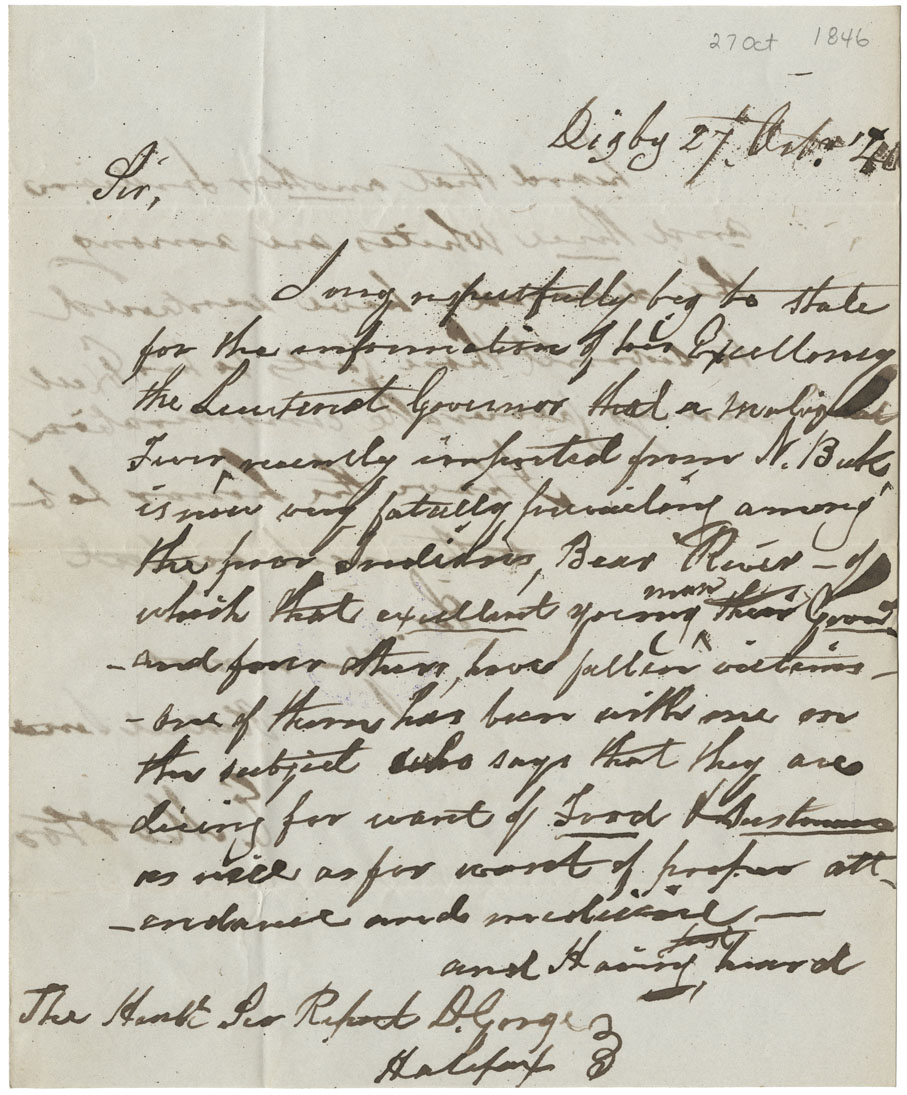 27 Oct 1846
Digby 27th Octbr. '46
Sir,
I may respectfully beg to state
for the information of his Excellency
the Lieutenant Governor that a malignant
Fever recently imported from N. Bwk
is now very fatally prevailing among
the poor Indians, Bear River – of
which that excellent young man
– and four others, have fallen victims –
– one of them has been with me on
the subject who says that they are
dieing for want of Food & Sustenance
as well as for want of proper att-
-endance and medicine —
and Having just heard
The Honble Sir Rupert D. George
Halifax